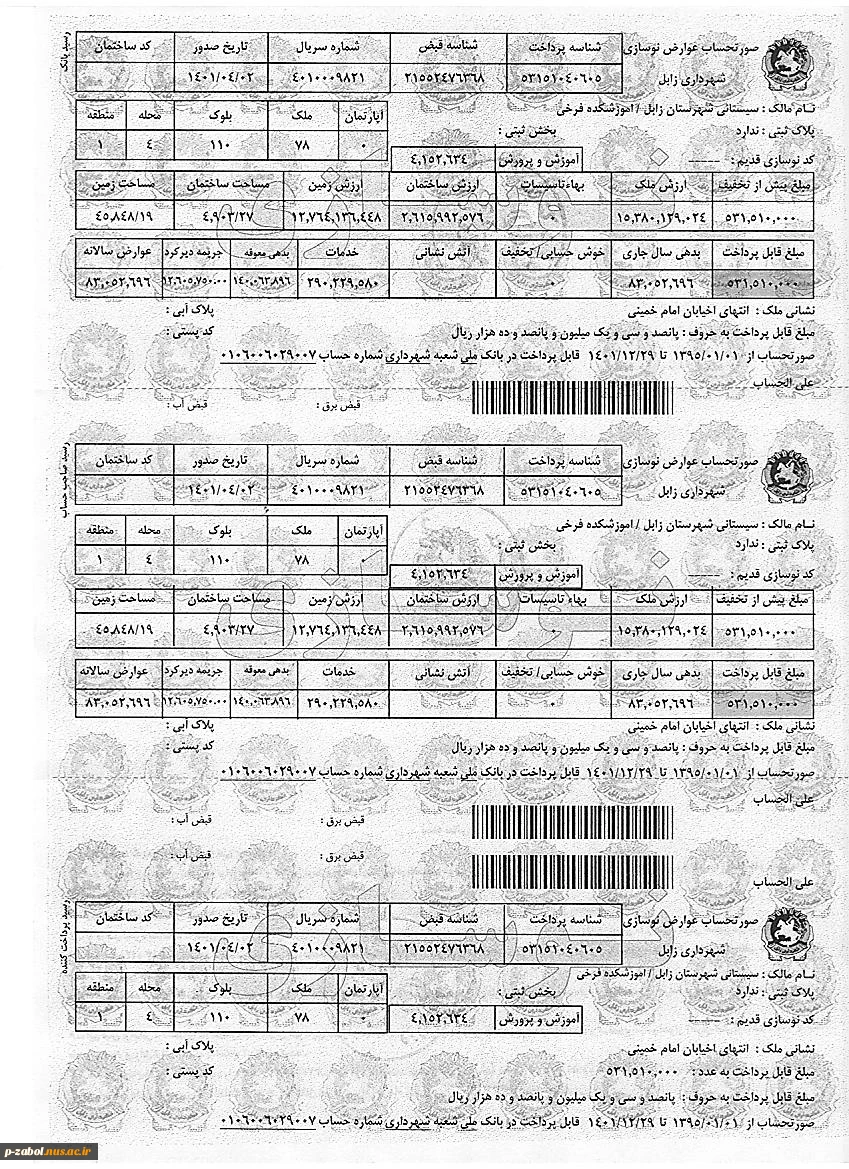 رسید بانک
صورتحساب عوارض نوسازی شناسه پرداخت شناسه قبض شماره سریال تاریخ صدور کد ساختمان
شهرداری زابل ۵۳۱۵۱۰۴۰۶۰۵ ۲۱۵۵۲۴۷۶۳۶۸ ۴۰۱۰۰۰۹۸۲۱ ۱۴۰۱/۰۴/۰۲
نام مالک : سیستانی شهرستان زابل / اموزشکده فرخی آپارتمان ملک بلوک محله منطقه
پلاک ثبتی : ندارد بخش ثبتی : ۰ ۷۸ ۱۱۰ ۴ ۱
کد نوسازی قدیم : ----- آموزش و پرورش ۴,۱۵۲,۶۳۴
مبلغ پیش از تخفیف ارزش ملک بهاء تاسیسات ارزش ساختمان ارزش زمین مساحت ساختمان مساحت زمین
۵۳۱,۵۱۰,۰۰۰ ۱۵,۳۸۰,۱۲۹,۰۲۴ ۰ ۲,۶۱۵,۹۹۲,۵۷۶ ۱۲,۷۶۴,۱۳۶,۴۴۸ ۴,۹۰۳/۲۷ ۴۵,۸۴۸/۱۹
مبلغ قابل پرداخت بدهی سال جاری خوش حسابی/ تخفیف آتش نشانی خدمات بدهی معوقه جریمه دیرکرد عوارض سالانه
۵۳۱,۵۱۰,۰۰۰ ۸۳,۰۵۲,۶۹۶ ۰ ۲۹۰,۲۲۹,۵۸۰ ۱۴۰,۰۶۳,۸۹۶ ۱۲,۶۰۵,۷۵۰.۰۰ ۸۳,۰۵۲,۶۹۶
نشانی ملک : انتهای اخیابان امام خمینی پلاک آبی :
مبلغ قابل پرداخت به حروف : پانصد و سی و یک میلیون و پانصد و ده هزار ریال کد پستی :
صورتحساب از ۱۳۹۵/۰۱/۰۱ تا ۱۴۰۱/۱۲/۲۹ قابل پرداخت در بانک ملی شعبه شهرداری شماره حساب ۰۱۰۶۰۰۶۰۲۹۰۰۷
علی الحساب
قبض برق : قبض آب :
رسید صاحب حساب
صورتحساب عوارض نوسازی شناسه پرداخت شناسه قبض شماره سریال تاریخ صدور کد ساختمان
شهرداری زابل ۵۳۱۵۱۰۴۰۶۰۵ ۲۱۵۵۲۴۷۶۳۶۸ ۴۰۱۰۰۰۹۸۲۱ ۱۴۰۱/۰۴/۰۲
نام مالک : سیستانی شهرستان زابل / اموزشکده فرخی آپارتمان ملک بلوک محله منطقه
پلاک ثبتی : ندارد بخش ثبتی : ۰ ۷۸ ۱۱۰ ۴ ۱
کد نوسازی قدیم : ----- آموزش و پرورش ۴,۱۵۲,۶۳۴
مبلغ پیش از تخفیف ارزش ملک بهاء تاسیسات ارزش ساختمان ارزش زمین مساحت ساختمان مساحت زمین
۵۳۱,۵۱۰,۰۰۰ ۱۵,۳۸۰,۱۲۹,۰۲۴ ۰ ۲,۶۱۵,۹۹۲,۵۷۶ ۱۲,۷۶۴,۱۳۶,۴۴۸ ۴,۹۰۳/۲۷ ۴۵,۸۴۸/۱۹
مبلغ قابل پرداخت بدهی سال جاری خوش حسابی/ تخفیف آتش نشانی خدمات بدهی معوقه جریمه دیرکرد عوارض سالانه
۵۳۱,۵۱۰,۰۰۰ ۸۳,۰۵۲,۶۹۶ ۰ ۲۹۰,۲۲۹,۵۸۰ ۱۴۰,۰۶۳,۸۹۶ ۱۲,۶۰۵,۷۵۰.۰۰ ۸۳,۰۵۲,۶۹۶
نشانی ملک : انتهای اخیابان امام خمینی پلاک آبی :
مبلغ قابل پرداخت به حروف : پانصد و سی و یک میلیون و پانصد و ده هزار ریال کد پستی :
صورتحساب از ۱۳۹۵/۰۱/۰۱ تا ۱۴۰۱/۱۲/۲۹ قابل پرداخت در بانک ملی شعبه شهرداری شماره حساب ۰۱۰۶۰۰۶۰۲۹۰۰۷
علی الحساب
قبض برق : قبض آب :
قبض برق : قبض آب :
علی الحساب
رسید پرداخت کننده
صورتحساب عوارض نوسازی شناسه پرداخت شناسه قبض شماره سریال تاریخ صدور کد ساختمان
شهرداری زابل ۵۳۱۵۱۰۴۰۶۰۵ ۲۱۵۵۲۴۷۶۳۶۸ ۴۰۱۰۰۰۹۸۲۱ ۱۴۰۱/۰۴/۰۲
نام مالک : سیستانی شهرستان زابل / اموزشکده فرخی آپارتمان ملک بلوک محله منطقه
پلاک ثبتی : ندارد بخش ثبتی : ۰ ۷۸ ۱۱۰ ۴ ۱
کد نوسازی قدیم : ----- آموزش و پرورش ۴,۱۵۲,۶۳۴
نشانی ملک : انتهای اخیابان امام خمینی پلاک آبی :
مبلغ قابل پرداخت به عدد : ۵۳۱,۵۱۰,۰۰۰ کد پستی :
مبلغ قابل پرداخت به حروف : پانصد و سی و یک میلیون و پانصد و ده هزار ریال
صورتحساب از ۱۳۹۵/۰۱/۰۱ تا ۱۴۰۱/۱۲/۲۹ قابل پرداخت در بانک ملی شعبه شهرداری شماره حساب ۰۱۰۶۰۰۶۰۲۹۰۰۷
p-zabol.nus.ac.ir